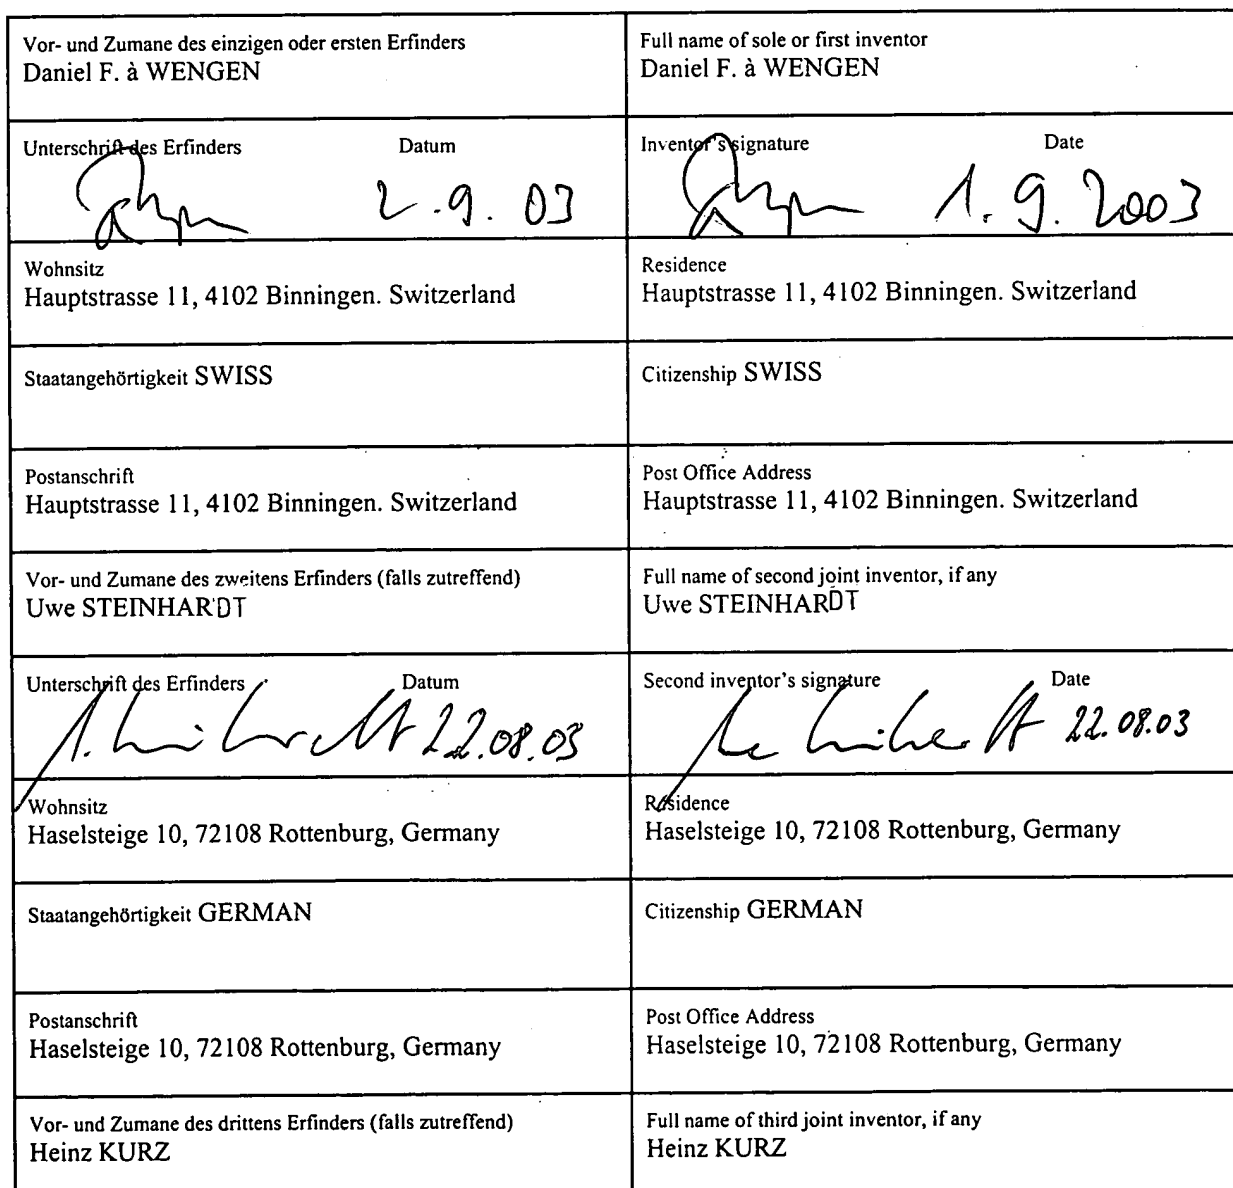 Vor- und Zumane des einzigen oder ersten Erfinders
Daniel F. à WENGEN
Full name of sole or first inventor
Daniel F. à WENGEN
Unterschrift des Erfinders Datum
2.9.03
Inventor's signature Date
1.9.2003
Wohnsitz
Hauptstrasse 11, 4102 Binningen. Switzerland
Residence
Hauptstrasse 11, 4102 Binningen. Switzerland
Staatangehörtigkeit SWISS
Citizenship SWISS
Postanschrift
Hauptstrasse 11, 4102 Binningen. Switzerland
Post Office Address
Hauptstrasse 11, 4102 Binningen. Switzerland
Vor- und Zumane des zweitens Erfinders (falls zutreffend)
Uwe STEINHARDT
Full name of second joint inventor, if any
Uwe STEINHARDT
Unterschrift des Erfinders Datum
22.08.03
Second inventor's signature Date
22.08.03
Wohnsitz
Haselsteige 10, 72108 Rottenburg, Germany
Residence
Haselsteige 10, 72108 Rottenburg, Germany
Staatangehörtigkeit GERMAN
Citizenship GERMAN
Postanschrift
Haselsteige 10, 72108 Rottenburg, Germany
Post Office Address
Haselsteige 10, 72108 Rottenburg, Germany
Vor- und Zumane des drittens Erfinders (falls zutreffend)
Heinz KURZ
Full name of third joint inventor, if any
Heinz KURZ